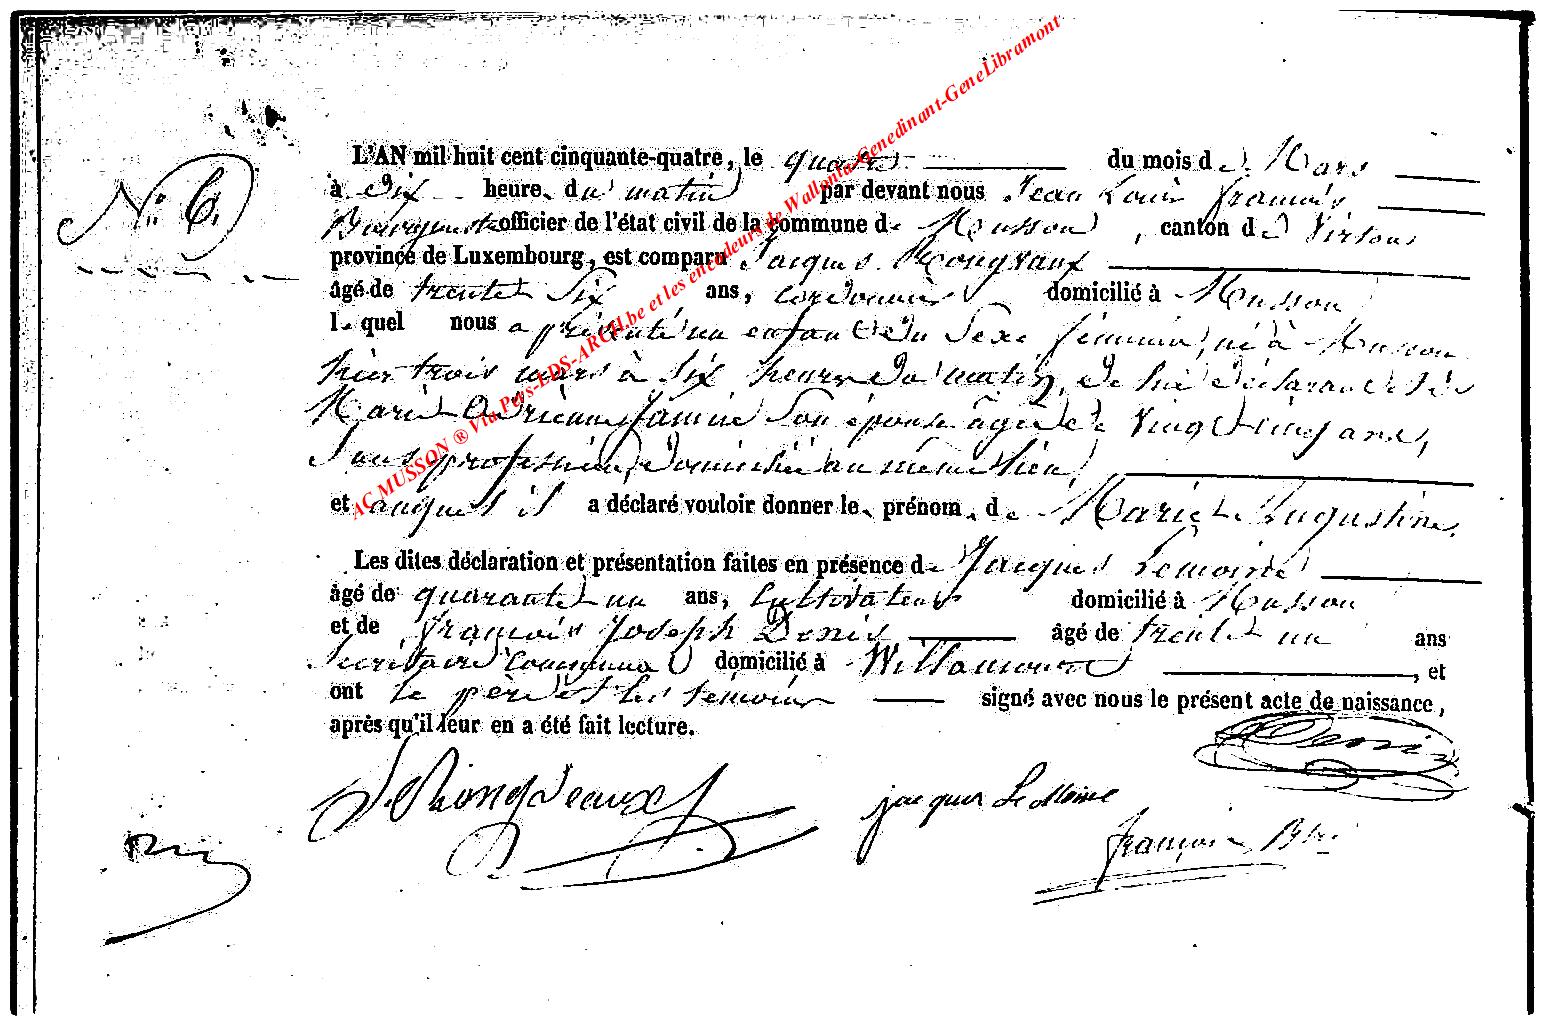 N° 6.
L'AN mil huit cent cinquante-quatre, le quatre du mois de Mars
à Dix heure du matin par devant nous Jean Louis françois
officier de l'état civil de la commune de Musson, canton de Virton
province de Luxembourg, est comparu Jacques Rongvaux
âgé de trente Six ans, cordonnier domicilié à Musson
le quel nous a présenté un enfant du Sexe féminin, né à Musson
hier trois mars à Six heures du matin, de lui déclarant et de
Marie Adrienne Jamine Son épouse âgée de Vingt cinq ans,
Sans profession, domiciliée au même lieu,
et auquel il a déclaré vouloir donner le prénom de Marie Augustine.
Les dites déclaration et présentation faites en présence de Jacques Lemoine
âgé de quarante un ans, Cultivateur domicilié à Musson
et de françois Joseph Denis âgé de trente un ans
Secrétaire Communal domicilié à Willancourt, et
ont le père et les témoins signé avec nous le présent acte de naissance,
après qu'il leur en a été fait lecture.
Denis
J. Rongveaux
jacques Le Moine
françois
AC MUSSON ® Via Pers-EDS-ARCH.be et les encodeurs de Wallonia-Genedinant-GeneLibramont